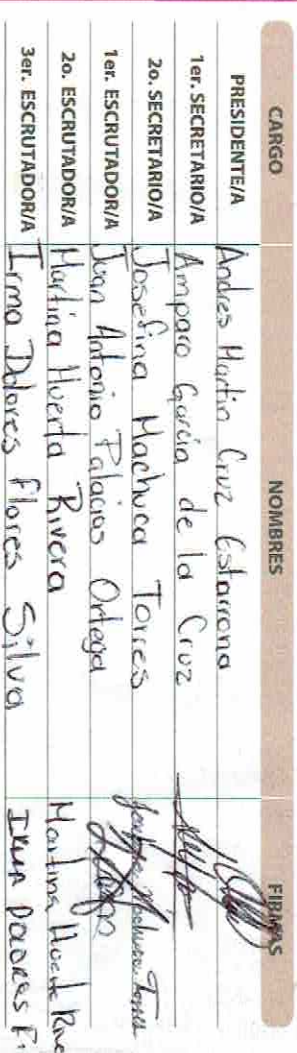 CARGO NOMBRES FIRMAS
PRESIDENTE/A Andres Martin Cruz Estarrona
1er. SECRETARIO/A Amparo García de la Cruz
2o. SECRETARIO/A Josefina Machuca Torres Josefina Machuca Torres
1er. ESCRUTADOR/A Juan Antonio Palacios Ortega
2o. ESCRUTADOR/A Martina Huerta Rivera Martina Huerta Rive
3er. ESCRUTADOR/A Irma Dolores Flores Silva Irma Dolores F